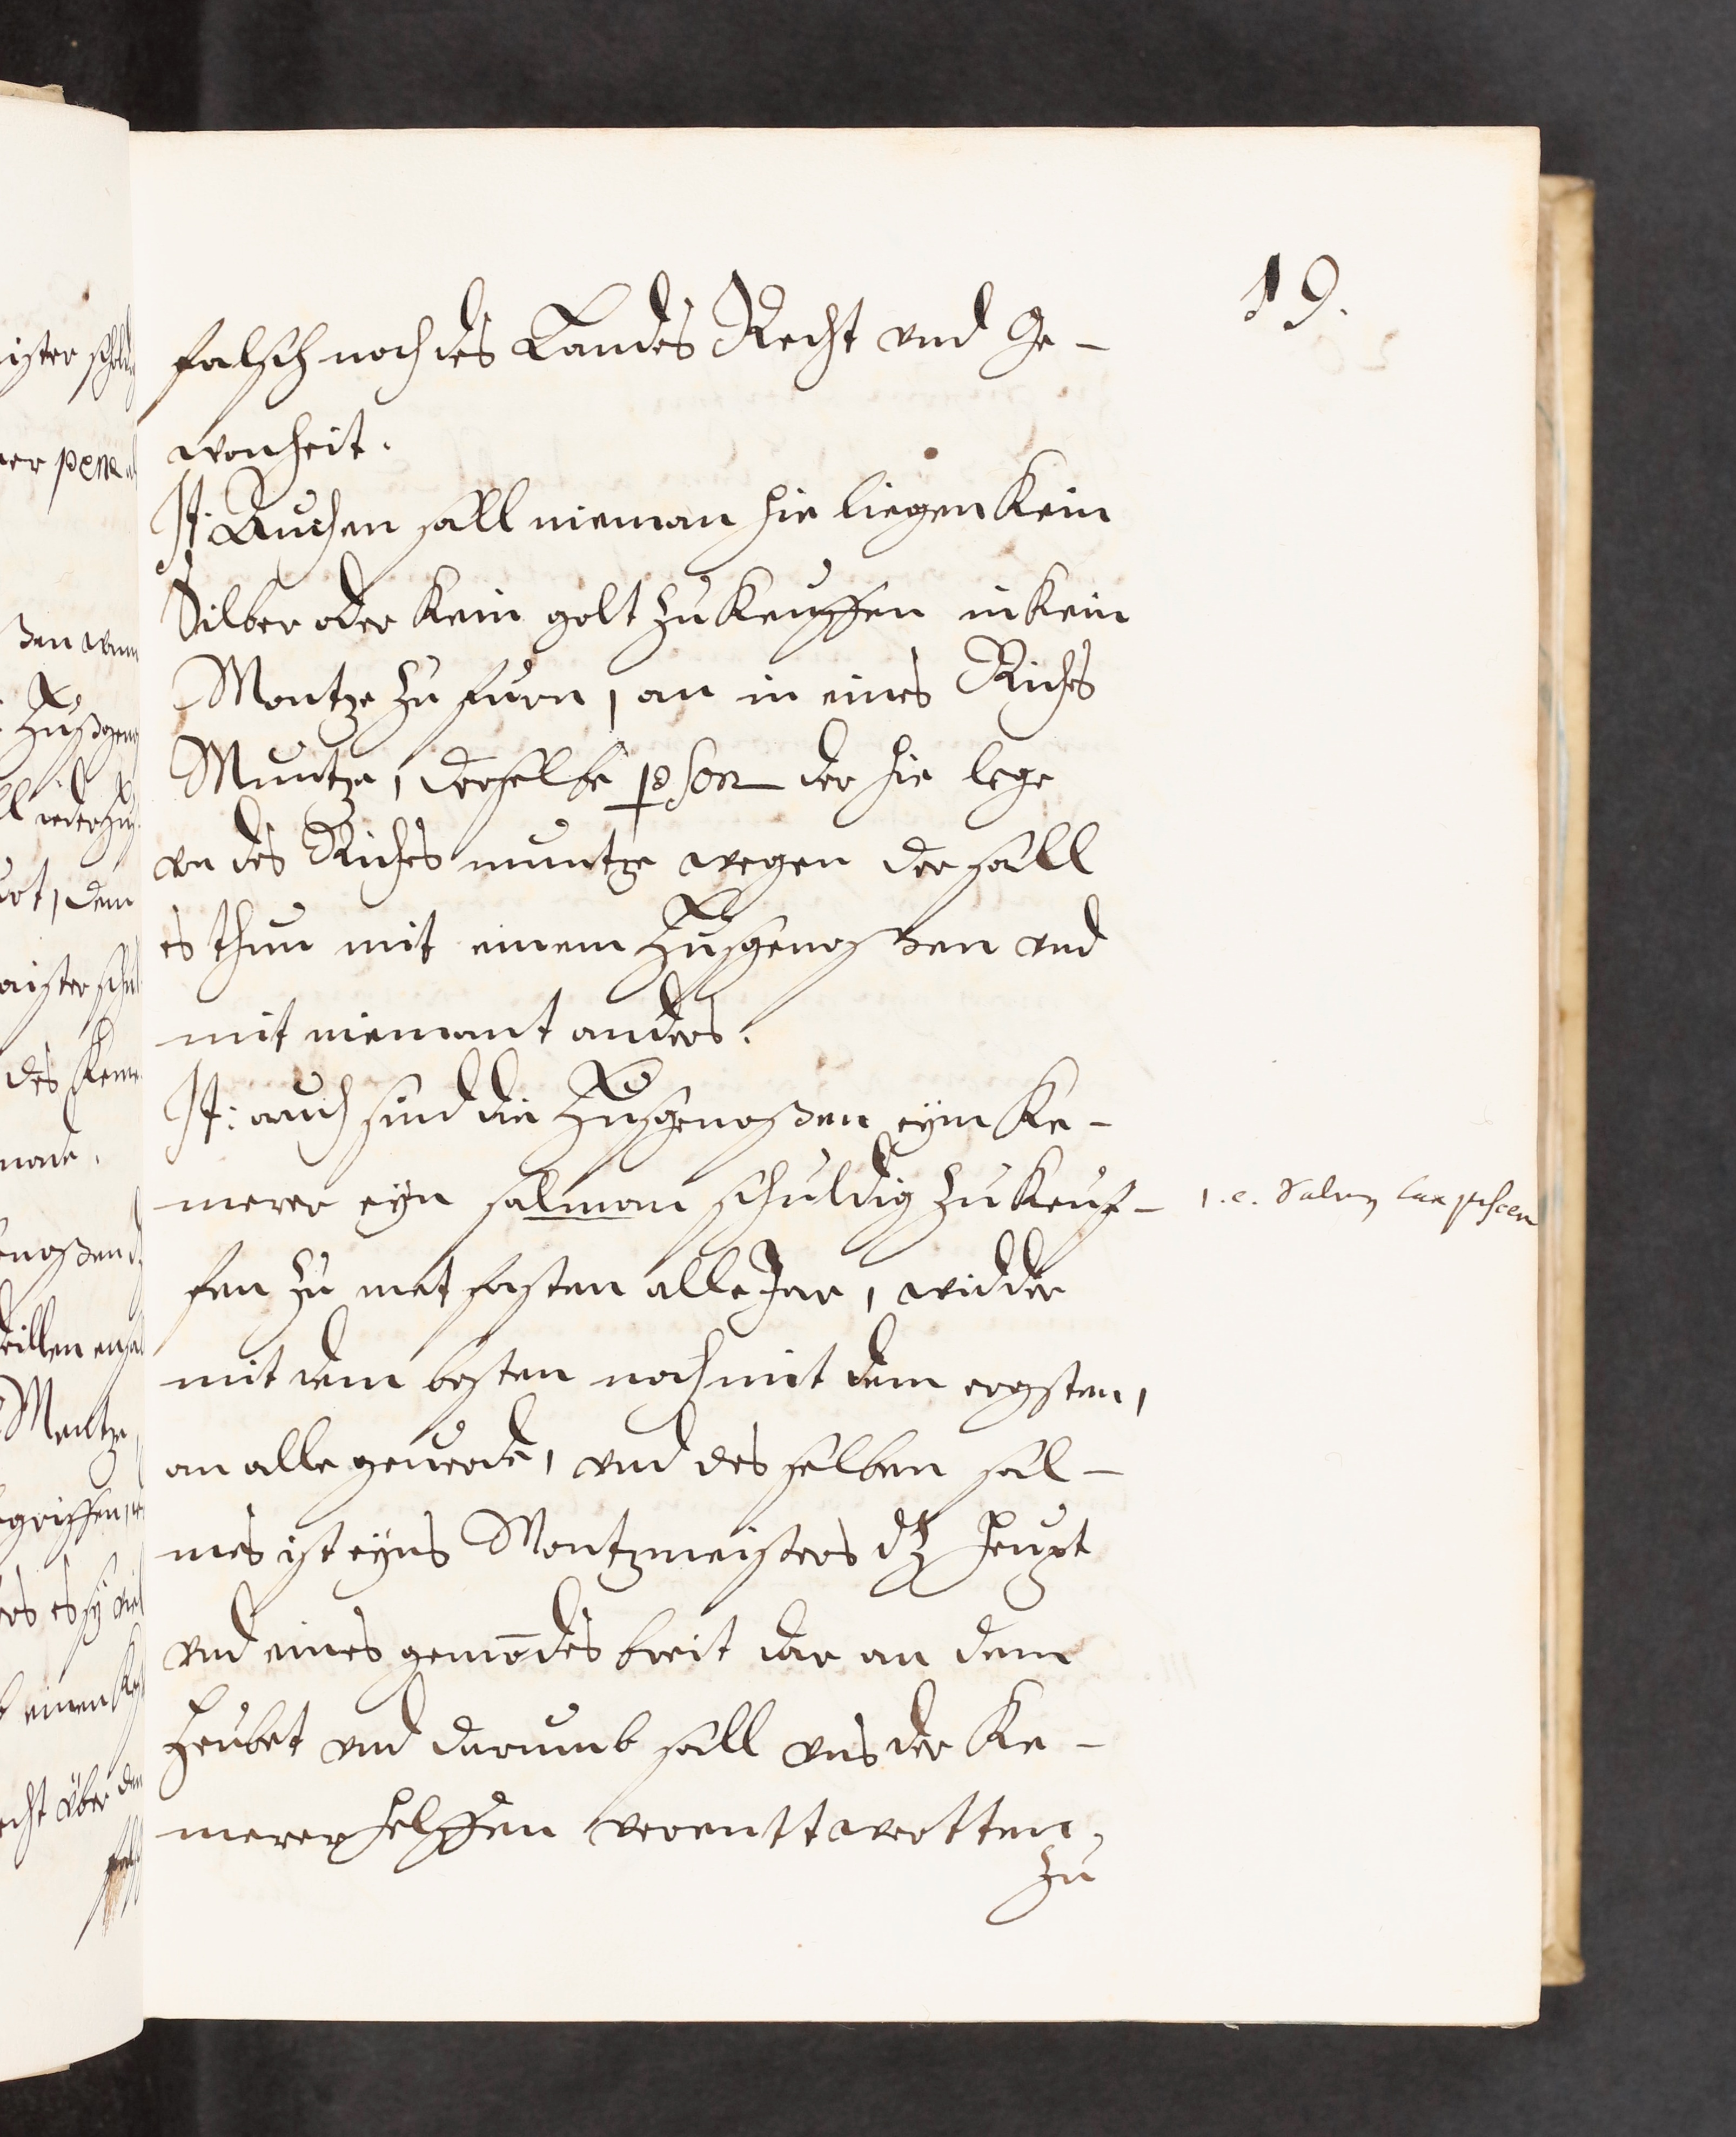 19.
falsch noch des Landes Recht und Ge-
wonheit.
It: Auch en sall nieman hie liegen kein
Silber oder kein golt zu keuffen in kein
Montze zu furn, an in eines Richs
Muntze, derselbe pson der hie lege
vō des Riches muntze wegen der sall
es thun mit einem Hußgenoßen vnd
mit niemant anders.
It: auch sind die Hußgenoßen eym Ke-
merer eyn salman schuldig zu keuf- 1. e. Salm
fen zu met fasten alle Jar, widder
mit dem besten noch mit dem ergsten,
an alle geuerde, vnd des selben sal-
mes ist eyns Montzmeisters dz Heupt
vnd eines gemōdes breit dar an dem
Heubet vnd darumb sall vns der Ke-
merer helffen verenttwortten,
zu